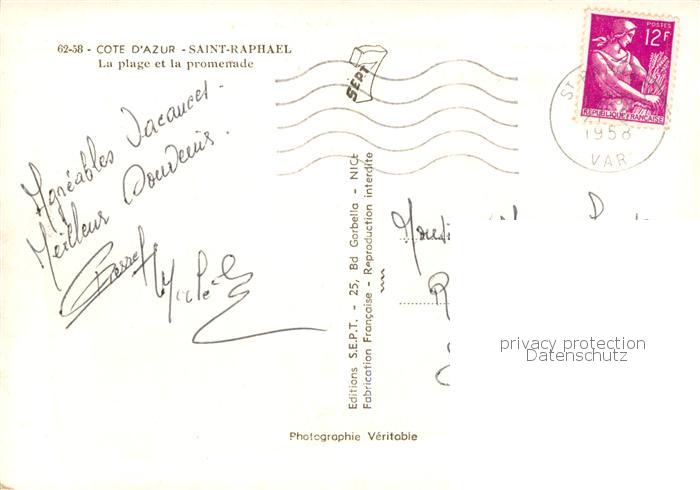 62-58 - COTE D'AZUR - SAINT-RAPHAEL
La plage et la promenade
SEPT
POSTES
12F
REPUBLIQUE FRANÇAISE
ST
1958
VAR
Agréables Vacances.
Meilleurs Souvenirs.
Editions S.E.P.T. - 25, Bd Gorbella - NICE
Fabrication Française - Reproduction interdite
privacy protection
Datenschutz
Photographie Véritable